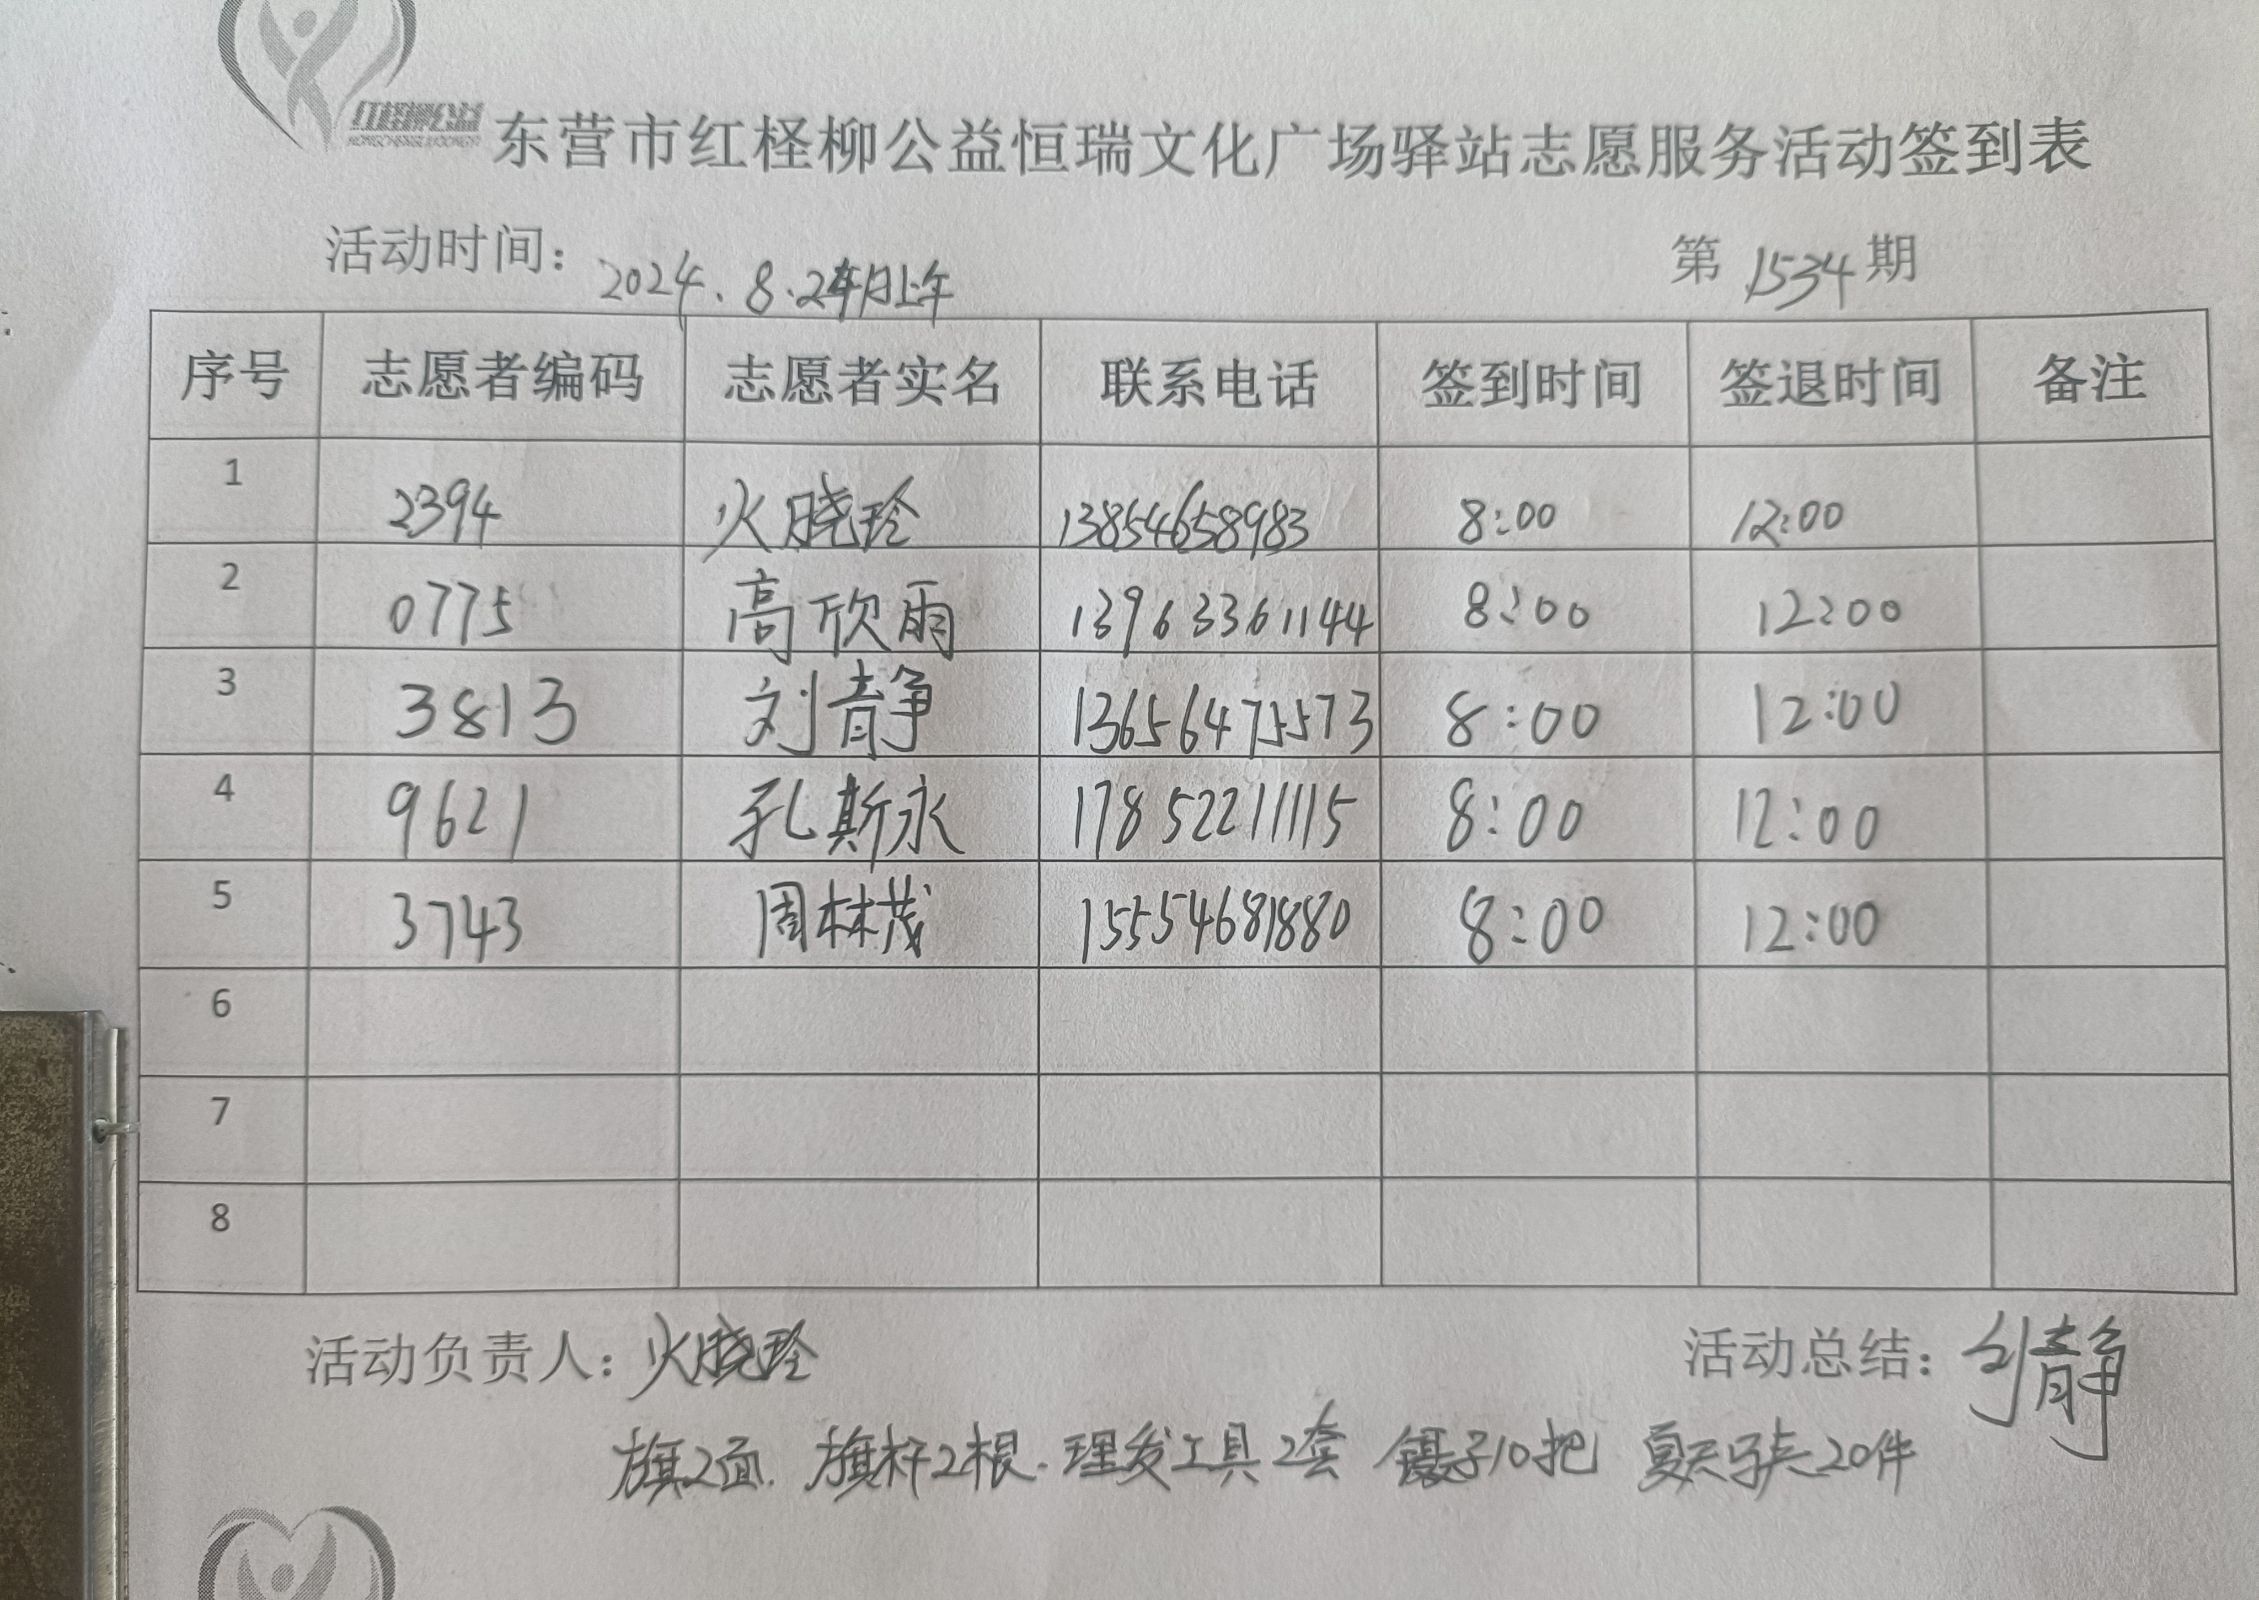 红柽柳公益
东营市红柽柳公益恒瑞文化广场驿站志愿服务活动签到表
活动时间： 2024.8.24日上午 第 1534 期
序号 志愿者编码 志愿者实名 联系电话 签到时间 签退时间 备注
1 2394 火晓玲 13854658983 8:00 12:00
2 0775 高欣雨 13963361144 8:00 12:00
3 3813 刘静 13656475573 8:00 12:00
4 9621 孔斯永 17852211115 8:00 12:00
5 3743 周林茂 15554681880 8:00 12:00
6
7
8
活动负责人：火晓玲 活动总结：刘静
旗2面. 旗杆2根. 理发工具2套 镊子10把 夏天马夹20件